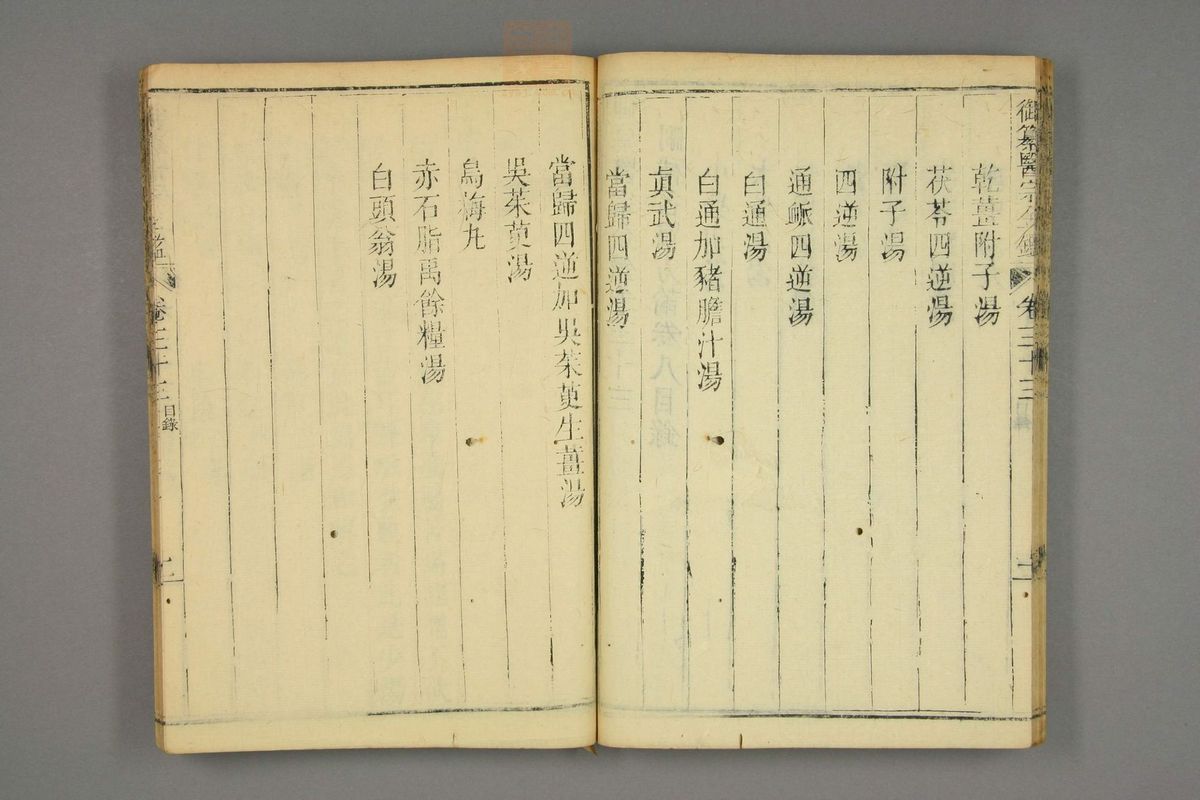 御纂醫宗金鑑 卷三十三
乾薑附子湯
茯苓四逆湯
附子湯
四逆湯
通脈四逆湯
白通湯
白通加豬膽汁湯
眞武湯
當歸四逆湯
當歸四逆加吳茱萸生薑湯
吳茱萸湯
烏梅丸
赤石脂禹餘糧湯
白頭翁湯
卷三十三 目錄
二